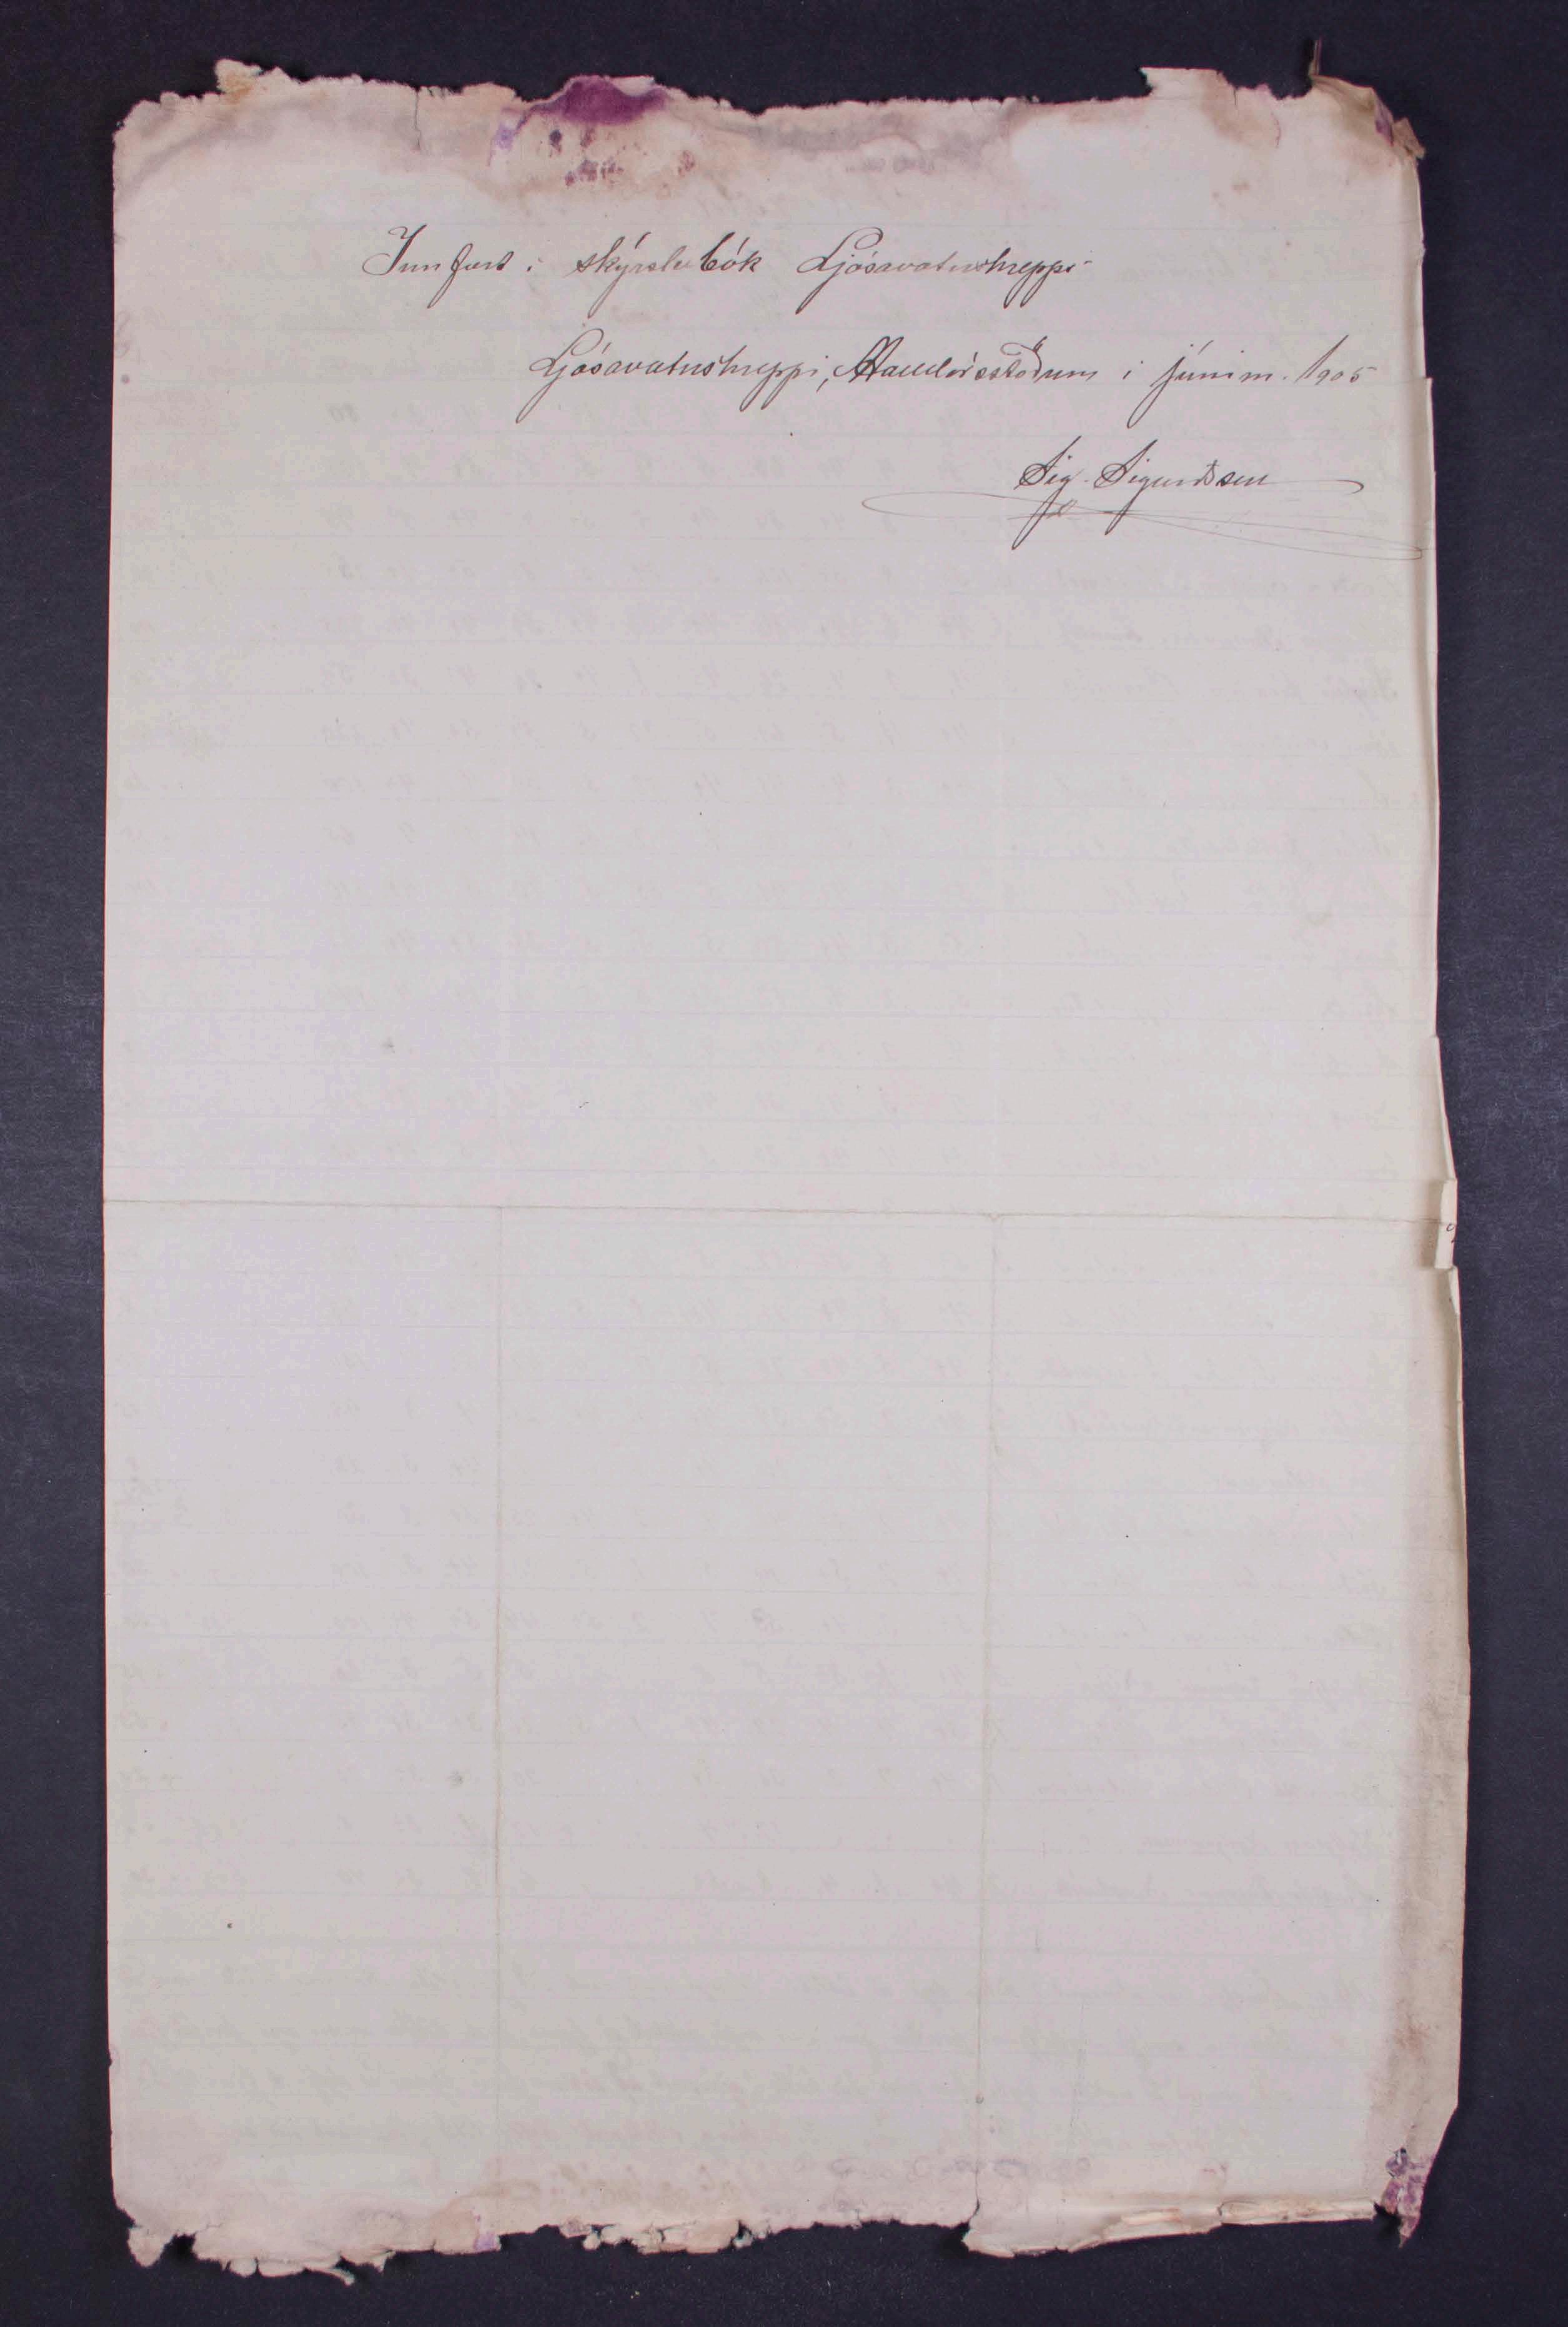 Innfært í skýrslubók Ljósavatnshrepps
Ljósavatnshreppi, Halldórsstöðum í júním. 1905
Sig. Sigurðsson